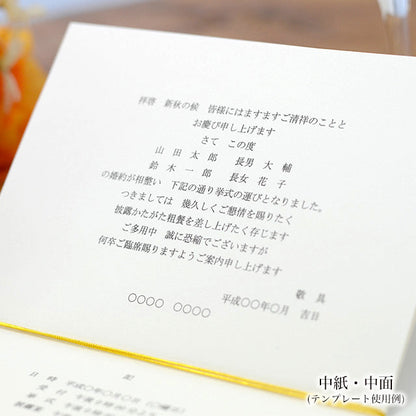 拝啓　新秋の候　皆様にはますますご清祥のことと
お慶び申し上げます
さて　この度
山田太郎　長男　大輔
鈴木一郎　長女　花子
の婚約が相整い　下記の通り挙式の運びとなりました。
つきましては　幾久しくご懇情を賜りたく
披露かたがた粗餐を差し上げたく存じます
ご多用中　誠に恐縮でございますが
何卒ご臨席賜りますようご案内申し上げます
敬具
平成〇〇年〇月　吉日
〇〇〇〇　〇〇〇〇
記
日時　平成〇年〇月〇日
中紙・中面
(テンプレート使用例)